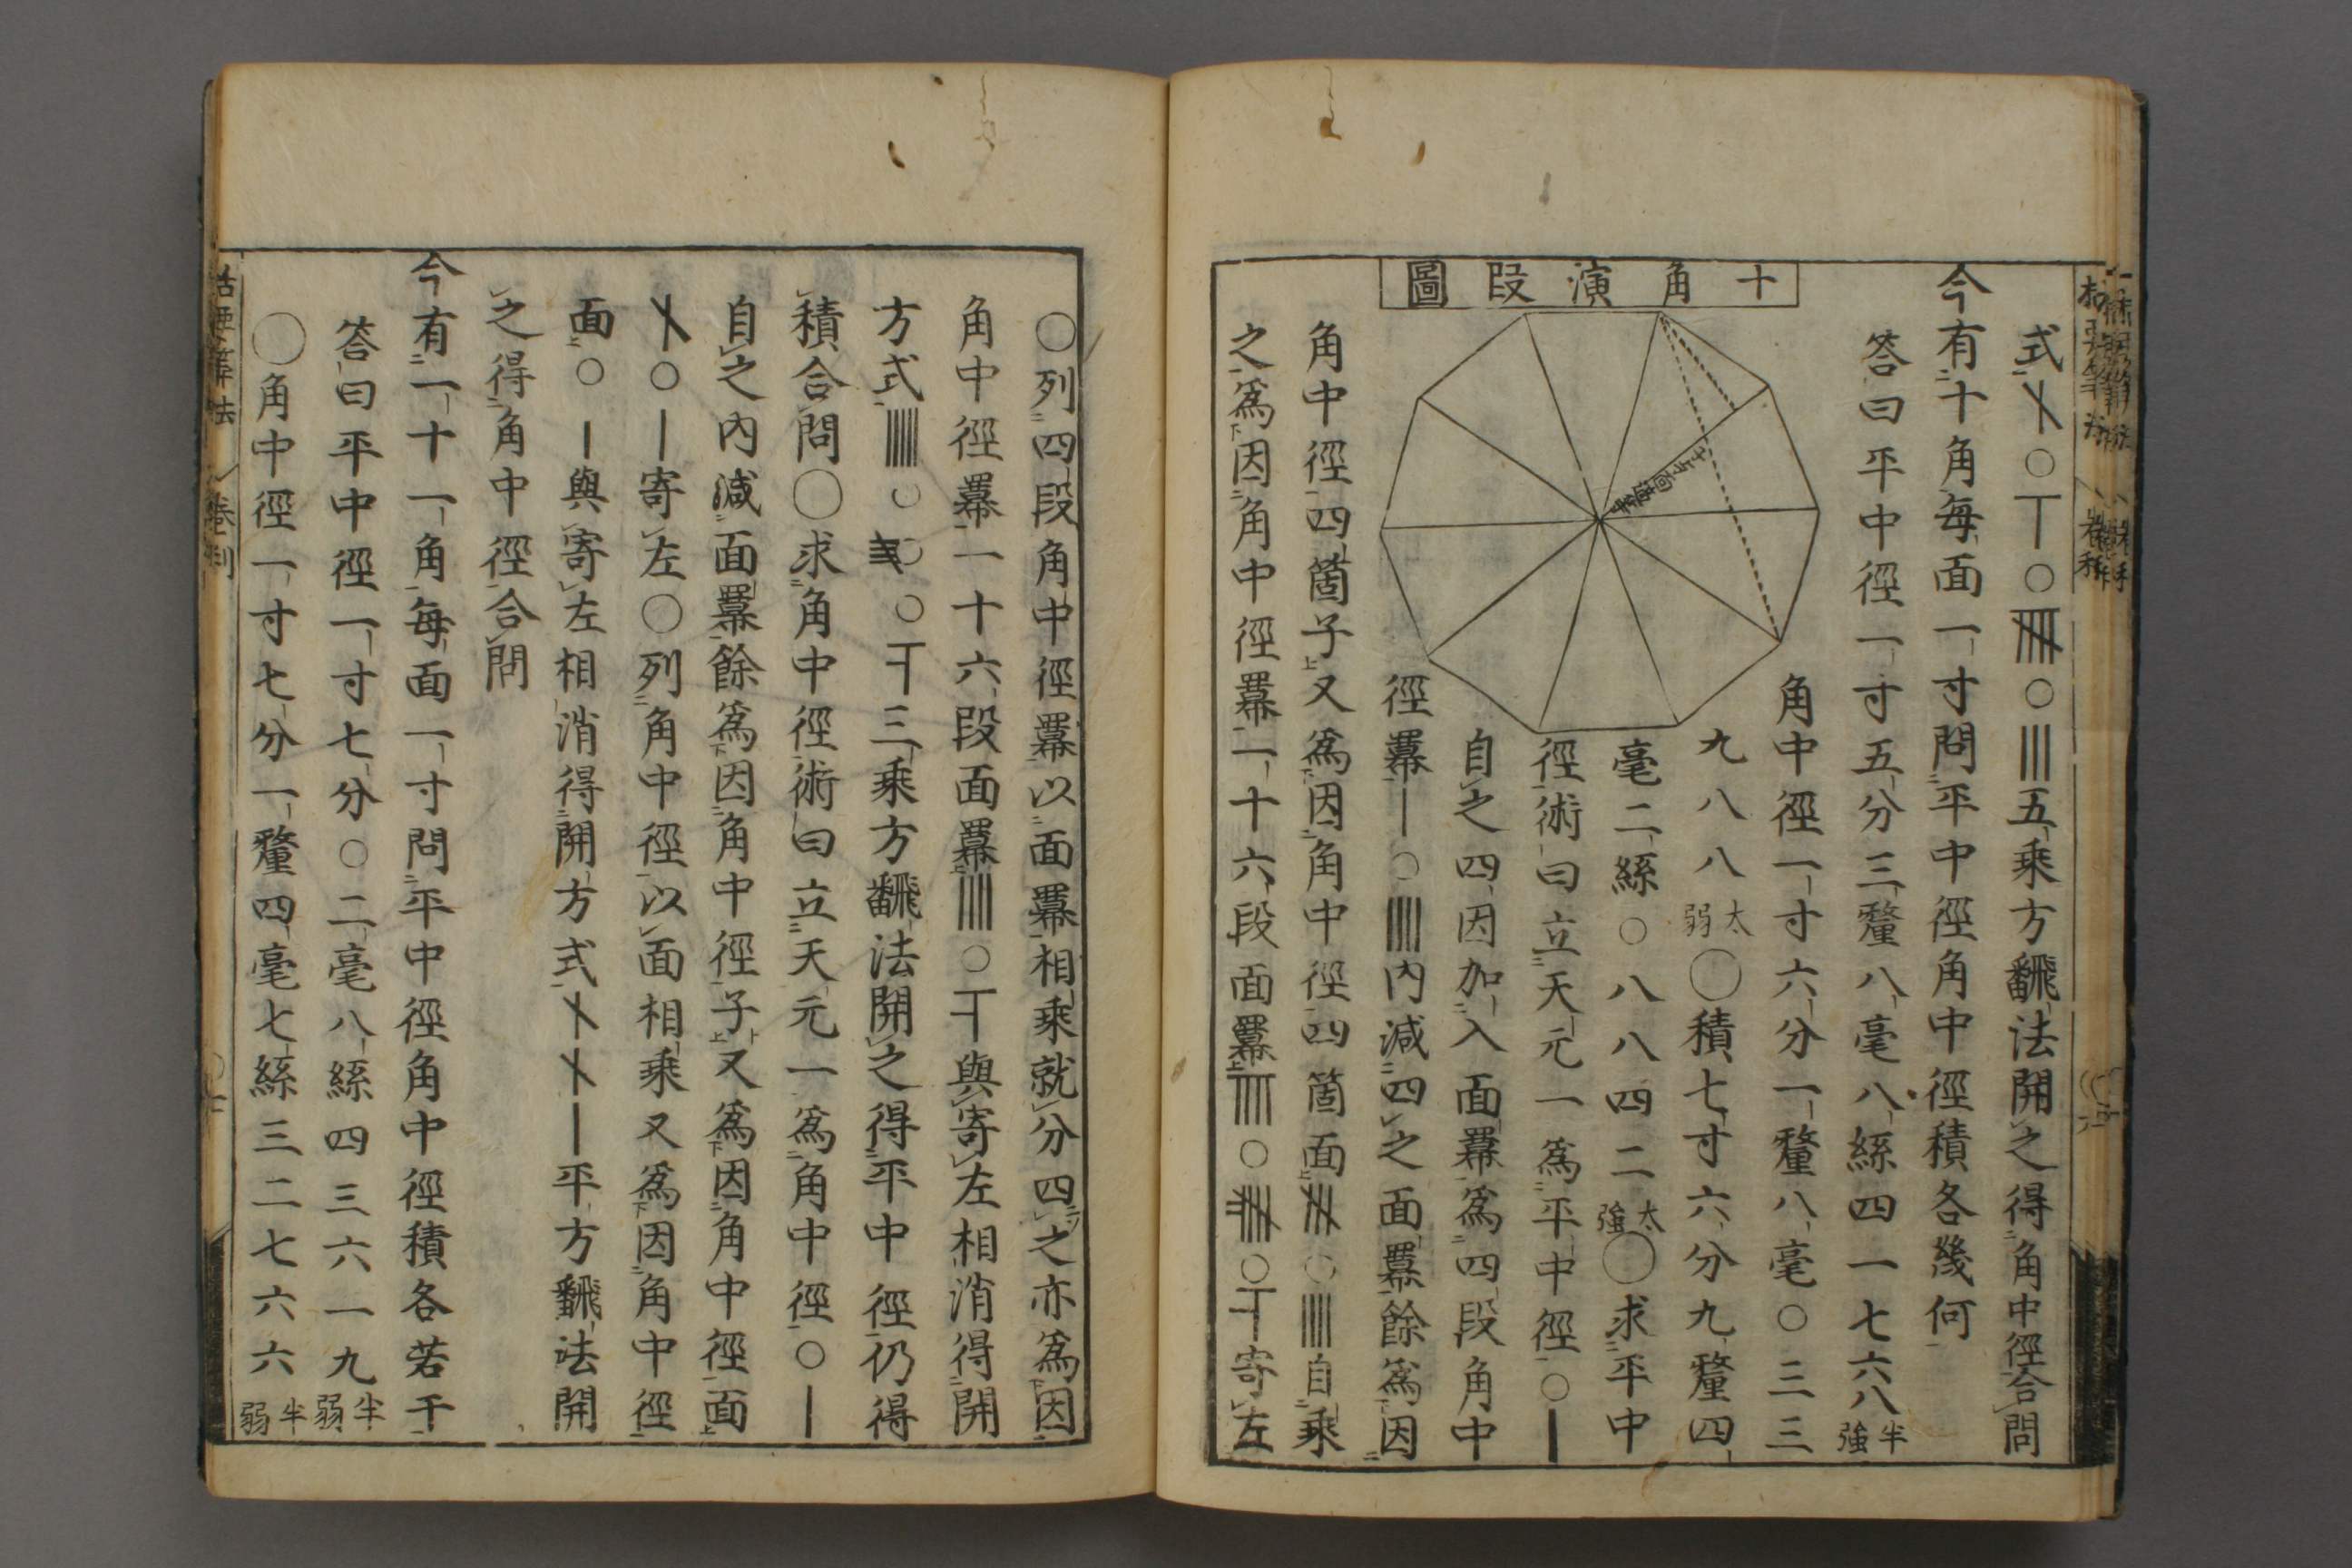 式〇〇〇五乘方飜法開之得角中徑合問
今有十角每面一寸問平中徑角中徑積各幾何
答曰平中徑一寸五分三釐八毫八絲四一七六八半強
角中徑一寸六分一釐八毫〇三三
九八八八太弱〇積七寸六分九釐四
毫二絲〇八八四二太強〇求平中
徑術曰立天元一爲平中徑〇〡
自之四因加入面羃爲四段角中
徑羃〡〇〣〡內減四之面羃餘爲因
十角演段圖
角中徑四箇子又爲因角中徑四箇面〇自乘
之爲因角中徑羃一十六段面羃〇〇寄左
〇列四段角中徑羃以面羃相乘就分四之亦爲因
角中徑羃一十六段面羃〇與寄左相消得開
方式〇〇〇三乘方飜法開之得平中徑仍得
積合問〇求角中徑術曰立天元一爲角中徑〇〡
自之內減面羃餘爲因角中徑子又爲因角中徑面
〇〡寄左〇列角中徑以面相乘又爲因角中徑
面〇〡與寄左相消得開方式〡平方飜法開
之得角中徑合問
今有一十一角每面一寸問平中徑角中徑積各若干
答曰平中徑一寸七分〇二毫八絲四三六一九半弱
〇角中徑一寸七分一釐四毫七絲三二七六六半弱
括要算法 卷利